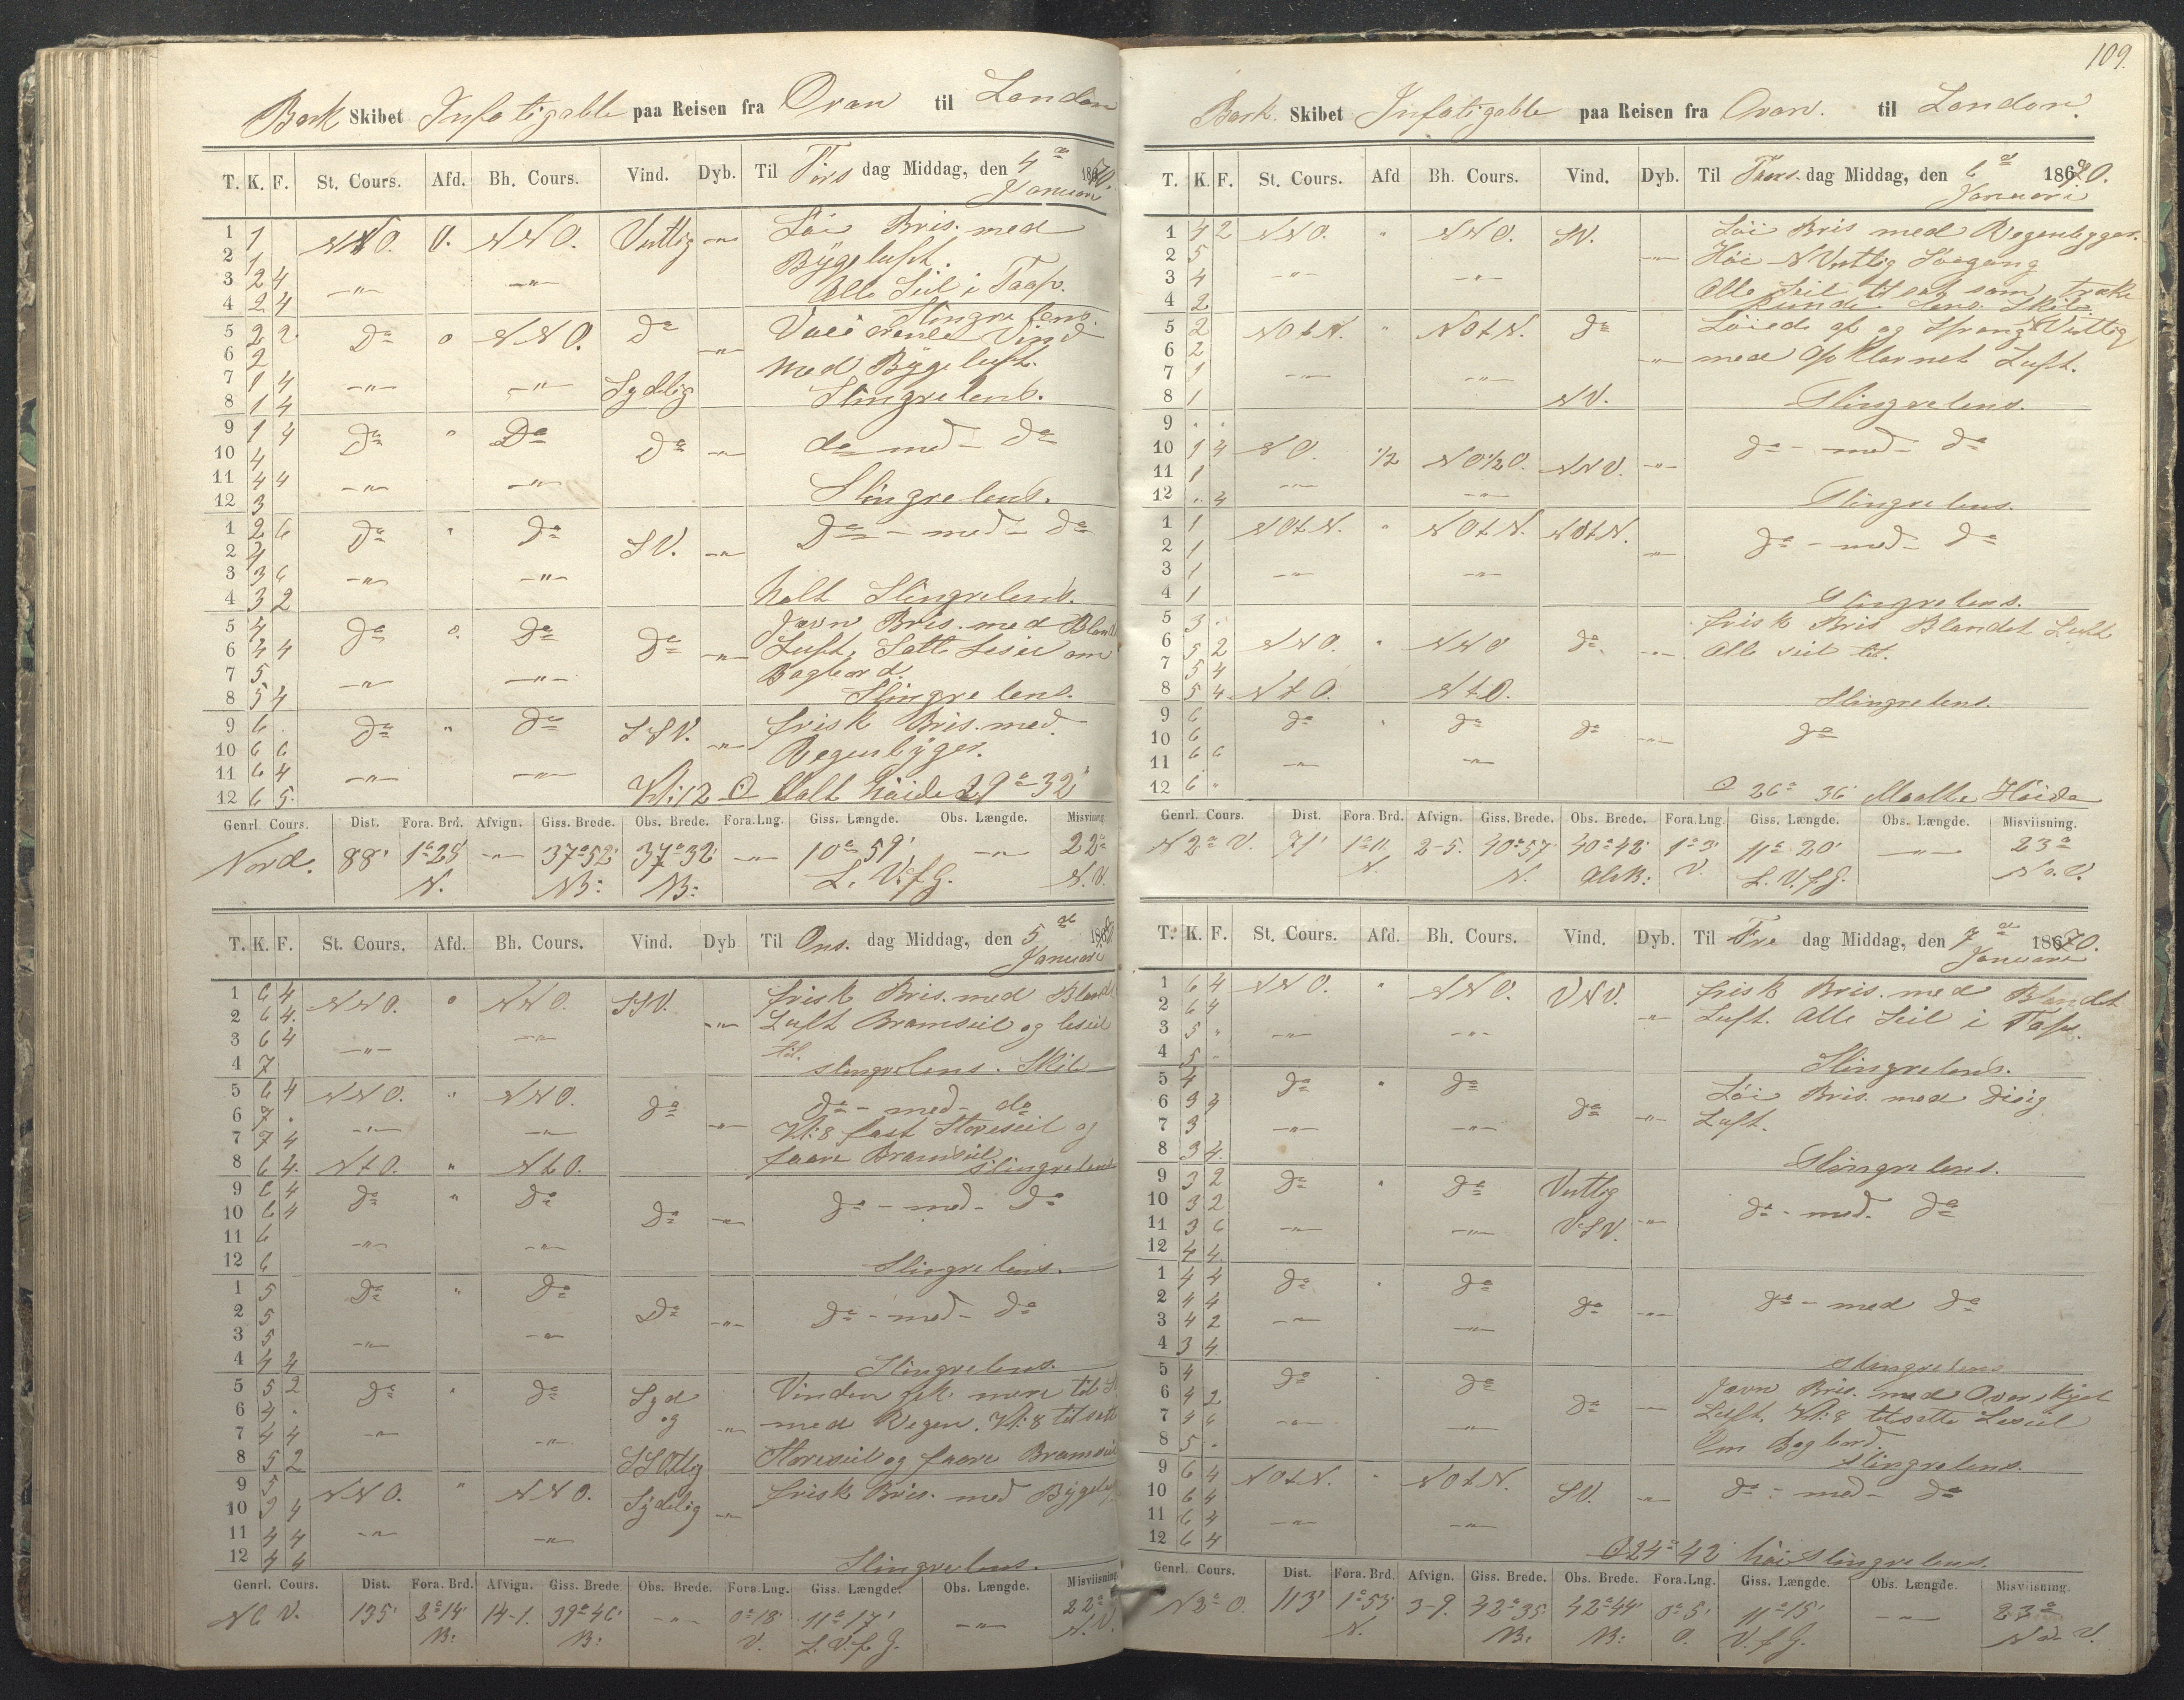 Bark Skibet Infatigable paa Reisen fra Oran til London
T. K. F. St. Cours. Afd. Bh. Cours. Vind. Dyb. Til Tirs dag Middag, den 4de Januari 1870.
1 1 NNO. 0. NNO. Vestlig -"- Löi Bris. med
2 1 Bÿgeluft.
3 2 4 -"- -"- Alle Seil i Taap.
4 2 4 Slingre lens.
5 2 2 Do 0 NNO. do -"- Vind
6 2 med Bÿgeluft.
7 1 4 -"- -"- Sydelig
8 1 4 Slingrelens.
9 1 4 Do " Do Do -"- do med do
10 4
11 4 4 -"- -"-
12 3 Slingrelens.
1 2 6 Do " do SV. -"- Do - med - do
2 4
3 3 6 -"- -"-
4 3 2 holt Slingrelens.
5 4 do 0. do do -"- Javn Bris. med Bland
6 4 4 Luft, Satte Leseil om
7 5 -"- -"- Bagbord.
8 5 4 Slingre lens.
9 6 . do " do SSV. -"- frisk Bris. med
10 6 6 Regenbÿger.
11 6 4 -"- -"-
12 6 5. Kl: 12 ⊙ Malt höide 29° 32'
Genrl. Cours. Dist. Fora. Brd. Afvign. Giss. Brede. Obs. Brede. Fora. Lng. Giss. Længde. Obs. Længde. Misvisning
Nord. 88' 1°28' -"- 37°52' 37°32' -"- 10° 59' -"- 22°
N. NB: NB: L. V. f G. N. V.
T. K. F. St. Cours. Afd. Bh. Cours. Vind. Dyb Til Ons. dag Middag, den 5de Januari 1870
1 6 4 NNO. 0 NNO. SSV. frisk Bris. med Bland
2 6 4. -"- Luft Bramseil og leseil
3 6 4 -"- -"- til.
4 7 slingrelens. Skib
5 6 4 NNO. " NNO. do do - med - do
6 7 . -"- -"- -"- Kl: 8 fast Storeseil og
7 7 4 faare Bramseil
8 6 4. NtO. " NtO. slingrelens
9 6 4 do " do do -"- do - med - do
10 6 4
11 6 -"- -"-
12 6 Slingrelens.
1 5 Do " Do Do -"- do - med - do
2 5
3 5 -"- -"-
4 4 4 Slingrelens.
5 5 2 do " do Syd Vinden fik mere til S
6 4 . og -"- med Regen. Kl: 8 tilsatte
7 4 4 -"- -"-
8 5 2 SSOtlig Storeseil og faare Bramseil
9 5 NNO. " NNO. Sydelig -"- frisk Bris. med Bÿgeluft
10 3 4
11 4 4 -"- -"-
12 4 4 Slingrelens.
Genrl. Cours. Dist. Fora. Brd. Afvign. Giss. Brede Obs. Brede. Fora. Lng. Giss. Længde. Obs. Længde. Misvisning
N6 V. 135' 2°14' 14-1. 39°46' -"- 0°18' 11°17' -"- 22°
NB: NB: V. L. V. f G. N. V.
109.
Bark. Skibet Infatigable paa Reisen fra Oran. til London.
T. K. F. St. Cours. Afd Bh. Cours. Vind. Dyb. Til Tors. dag Middag, den 6de Januari 1870.
1 4 2 NNO. " NNO. SV. Löi Bris med Regenbyger.
2 5 -"- Höi NVestlig Söegang
3 4 -"- -"- Alle Seil til sat som trække
4 2 kunde. lens. Skib.
5 2 NOtN. " NOtN. do Löiede af og Sprang NVestlig
6 2 -"- med opklarnet Luft.
7 1 -"- -"-
8 1 NV. Slingrelens.
9 . .
10 1 4 NO. 1/2 NO1/2O. NNV. -"- do - med - do
11 1 -"- -"-
12 . 4 Slingrelens.
1 1 NOtN. " NOtN. NOtN. do - med - do
2 1 -"-
3 1 -"- -"-
4 1 Slingrelens.
5 3 . frisk Bris Blandet Luft
6 5 2 NNO. " NNO do. -"- Alle seil til.
7 5 4
8 5 4. NtO. NtO. Slingrelens.
9 6 do " do do do
10 6 -"-
11 6 6 -"- -"-
12 6 " ⊙ 26° 36' Maalte Höide
Genrl. Cours. Dist. Fora. Brd. Afvign. Giss. Brede. Obs. Brede. Fora. Lng. Giss. Længde. Obs. Længde. Misviisning.
N2° V. 71' 1°11' 2-5. 40°57' 40°42' 1°3' 11° 20' -"- 23°
N. N. V. L. V. f. G. No. V.
T. K. F. St. Cours. Afd. Bh. Cours. Vind. Dyb. Til Fre dag Middag, den 7de Januari 1870.
1 6 4 NNO. " NNO. VNV. frisk Bris. med Blandet
2 6 4 -"- Luft. Alle Seil i Taap.
3 5 " -"- -"-
4 5 - Slingrelens.
5 4 do " do Löi Bris. med disig
6 3 4 do -"- Luft.
7 3 -"- -"-
8 3 4. Slingrelens.
9 3 2 do " do Vestlig
10 3 2 do - med. do
11 3 6 -"- -"- VSV. -"-
12 4 4.
1 4 4 do " do
2 4 4 do -"- do - med do
3 4 2 -"- -"-
4 3 4 Slingrelens
5 4 do do Javn Bris. med Overskyet
6 4 2 do -"- Luft. Kl: 8 tilsatte Leseil
7 4 4 -"- -"-
8 5 . Om Bagbord. Slingrelens.
9 6 4 NOtN. " NOtN.
10 6 4 SV. -"- do - med - do
11 6 4 -"- -"-
12 6 4 ⊙ 24° 42' höi Slingrelens.
Genrl. Cours. Dist. Fora. Brd. Afvign. Giss. Brede. Obs. Brede. Fora. Lng. Giss. Længde. Obs. Længde. Misviisning.
N2° O. 113' 1°53' 3-9. 42°35' 42°44' 0°5' 11°15' -"- 23°
N. NB: NB: O. V. f G. No V.